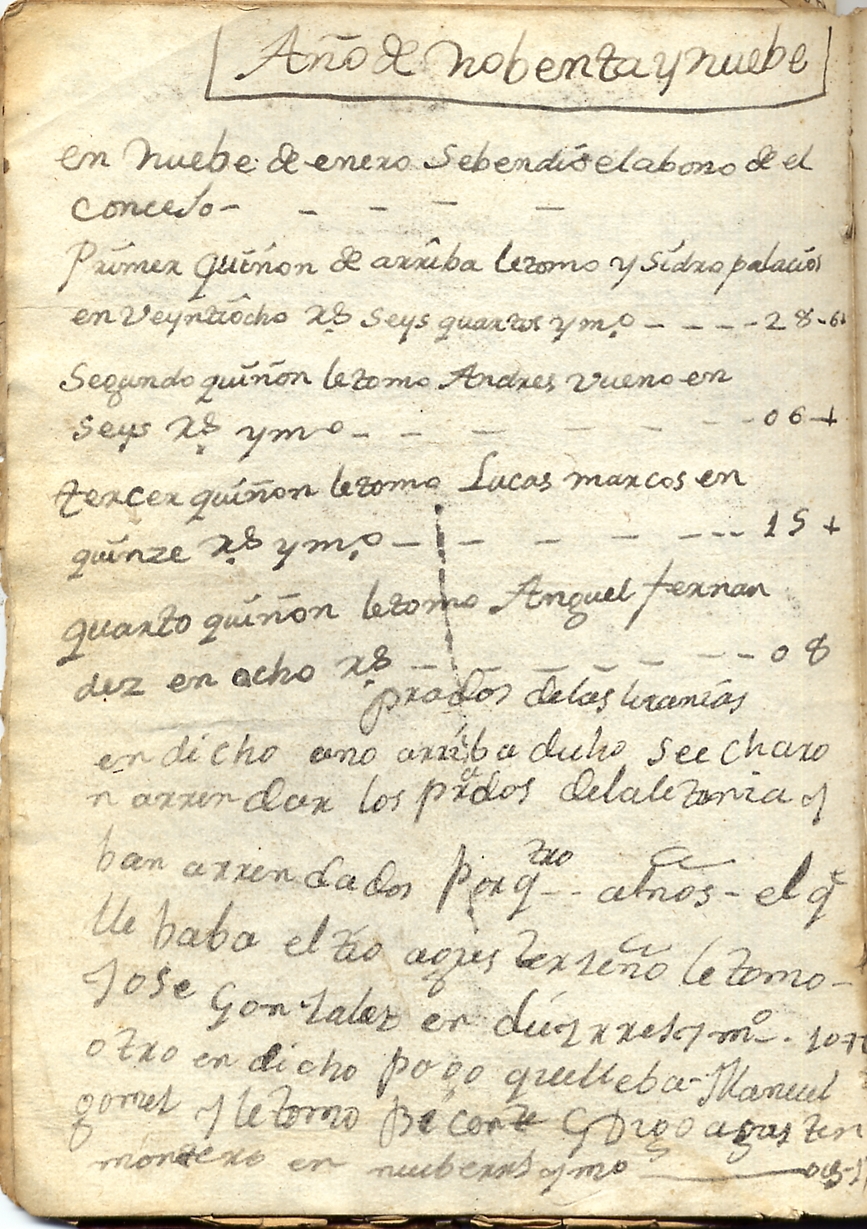 Año de nobenta y nuebe
en nuebe de enero Sebendio elabono de el
concejo - - - - -
Primer quiñon de arriba letomo ysidro palacios
en Veyntiocho Rs seys quartos y mo - - - - 28-6
Segundo quiñon letomo Andres Vueno en
seys Rs y mo - - - - - - 06 +
tercer quiñon letomo Lucas marcos en
quinze Rs y mo - - - - - - 15 +
quarto quiñon letomo Anguel fernan
dez en ocho Rs - - - - - - 08
prados delas
en dicho ano arriba dicho see charo
n arrendar los prados dela y
ban arrendados por qtro años - el q
lle baba el tio letomo -
Jose Gonzalez en y mo -
otro en dicho pogo quelleba Manuel
gomez y letomo
montero en y mo